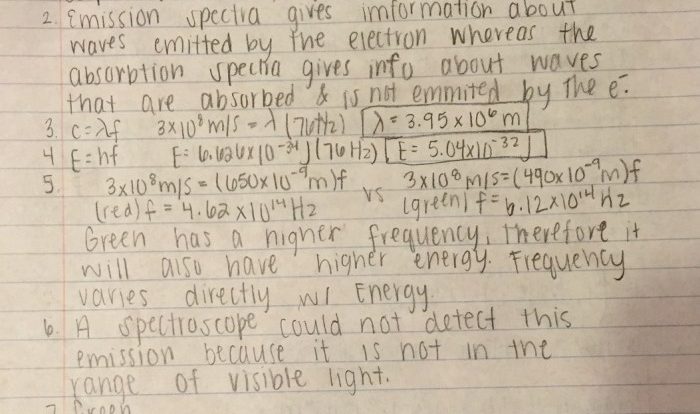 2. Emission spectra gives imformation about
waves emitted by the electron whereas the
absorbtion spectra gives info about waves
that are absorbed & is not emmited by the e⁻.
3. c=λf 3×10⁸m/s = λ (76Hz) λ= 3.95 × 10⁶ m
4 E=hf E= 6.626×10⁻³⁴J(76Hz) E= 5.04×10⁻³² J
5. 3×10⁸m/s = (650×10⁻⁹m)f vs 3×10⁸m/s=(490×10⁻⁹m)f
(red) f = 4.62 ×10¹⁴Hz (green) f= 6.12×10¹⁴ Hz
Green has a higher frequency, therefore it
will also have higher energy. Frequency
varies directly w/ Energy.
6. A spectroscope could not detect this
emission because it is not in the
range of visible light.
7. Green